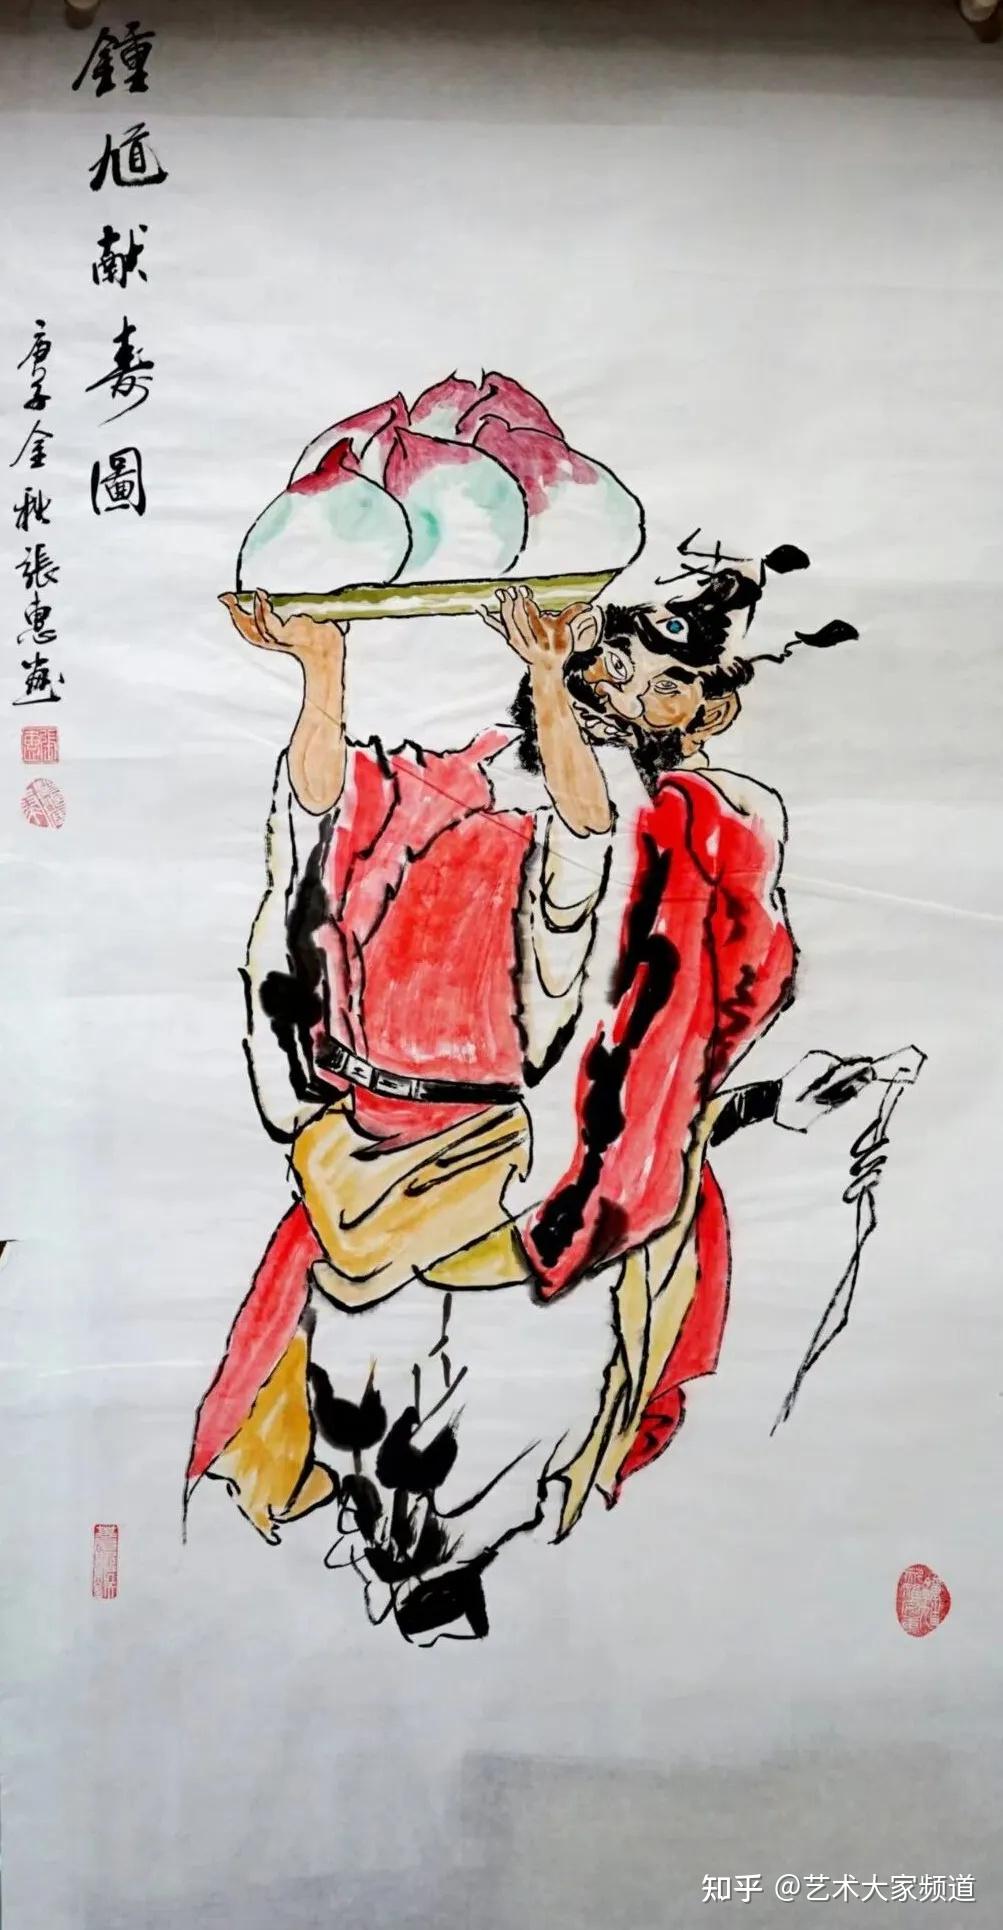 鍾馗献壽圖
庚子金秋張惠
知乎 @艺术大家频道